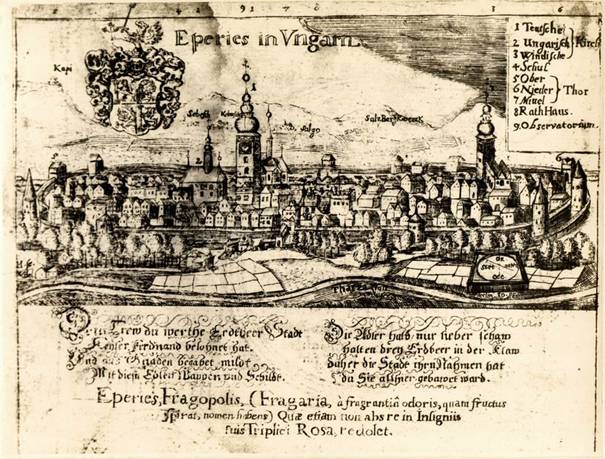 Eperies in Vngarn.
1 Teutsche
2 Ungarisch Kirch
3 Windische
4 Schul
5 Ober
6 Nieder Thor
7 Mittel
8 RathHaus.
9 Observatorium.
Kapi
Salgo
du werthe Erdtbeer Stadt
Keyser Ferdinand belohnet hat.
Gnaden begabet milt
Mit diesem Edlen Wappen und Schildt.
Die Adler halb nur lieber schaw
halten drey Erdbeer in der Klaw
daher die Stadt ihren Nahmen hat
da Sie gebawet ward.
Eperies, Fragopolis, (Fragaria, à fragrantia odoris, quam fructus
spirat, nomen habens) Quæ etiam non abs re in Insigniis
suis Triplici Rosa, redolet.